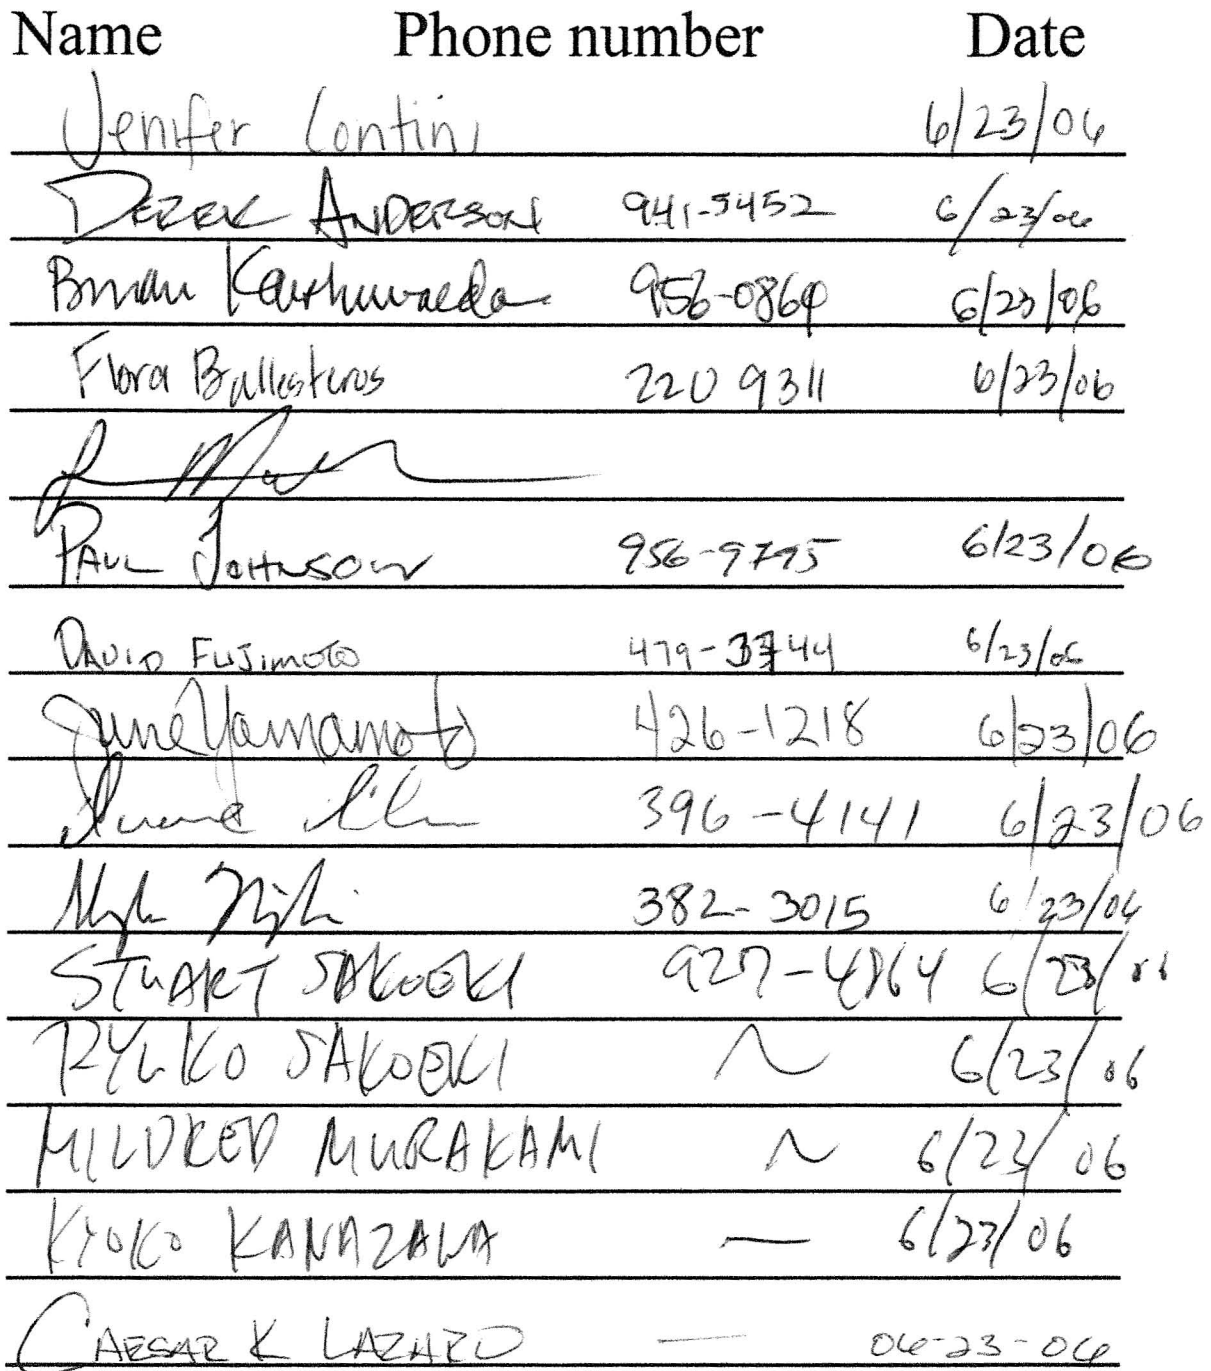 Name Phone number Date
Jenifer Contini 6/23/06
DEREK ANDERSON 941-5452 6/23/06
Brian 956-0864 6/23/06
Flora Ballesteros 220 9311 6/23/06
PAUL JOHNSON 956-9795 6/23/06
DAVID FUJIMOTO 479-3744 6/23/06
June Yamamoto 426-1218 6/23/06
396-4141 6/23/06
382-3015 6/23/06
STUART SAKOEKI 927-4864 6/23/06
RYUKO SAKOEKI ~ 6/23/06
MILDRED MURAKAMI ~ 6/23/06
KYOKO KANAZAWA — 6/23/06
CAESAR K LAZARO — 06-23-06